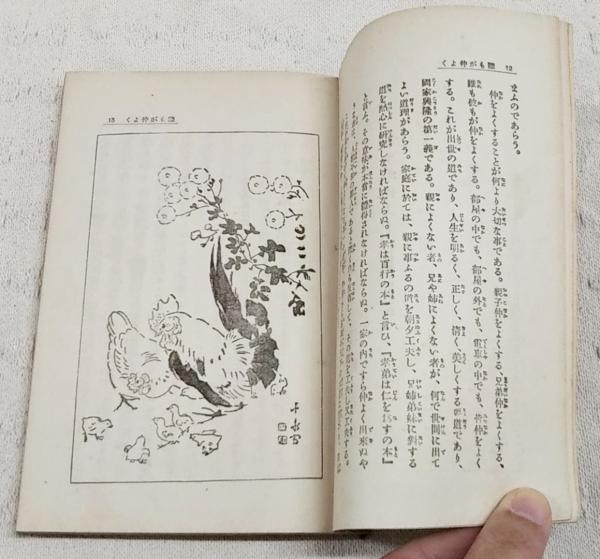 誰もが仲よく 12
まふのであらう。
仲をよくすることが何より大切な事である。親子仲をよくする、兄弟仲をよくする、
誰も彼もが仲をよくする。部屋の中でも、部屋の外でも、電車の中でも、皆仲をよく
する。これが出世の道であり、人生を明るく、正しく、清く、美しくする道であり、
國家興隆の第一義である。親によくない者、兄や姉によくない者が、何で世間に出て
よい道理があらう。家庭に於ては、親に事ふるの道を朝夕工夫し、兄姉弟妹に對する
道を熱心に研究しなければならぬ。『孝は百行の本』と言ひ、『孝弟は仁を爲すの本』
と言ふ。その意味が本當に體得されなければならぬ。一家の内ですら仲よく出來ぬや
誰もが仲よく 13